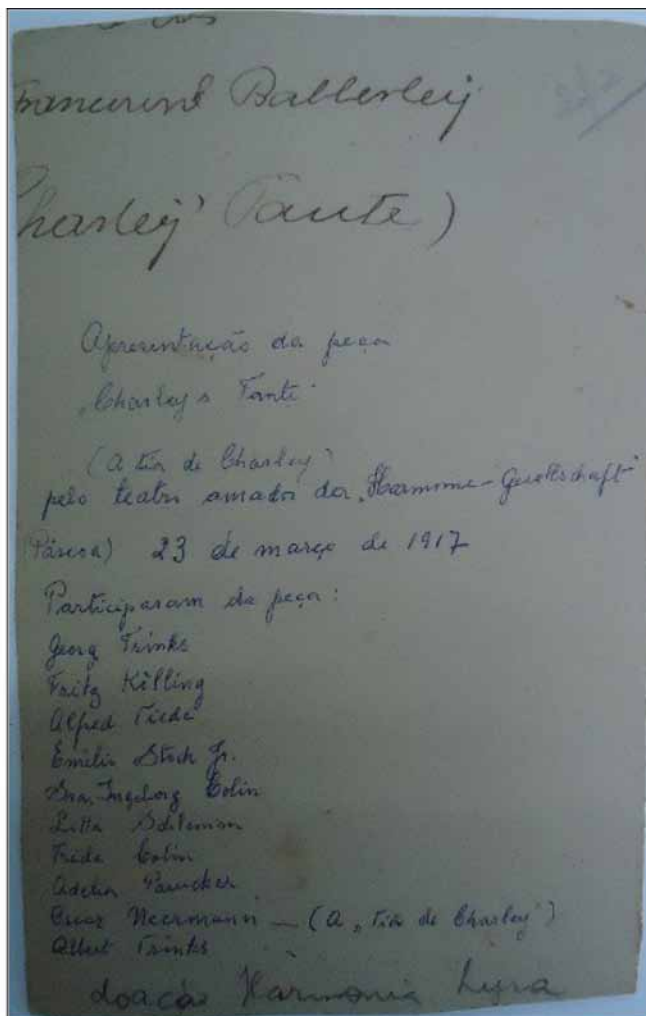 Francourt Babberley
Charley' Tante)
Apresentação da peça
„Charleys Tante"
(A tia de Charley)
pelo teatro amador da „Harmonie-Gesellschaft"
(Páscoa) 23 de março de 1917
Participaram da peça:
Georg Trinks
Fritz Kölling
Alfred Tiede
Emilio Stock Jr.
Sra. Ingeborg Colin
Lilla
Frida Colin
Adelia Parucker
Oscar Neermann — (A „tia de Charley")
Albert Trinks
doação Harmonia Lyra